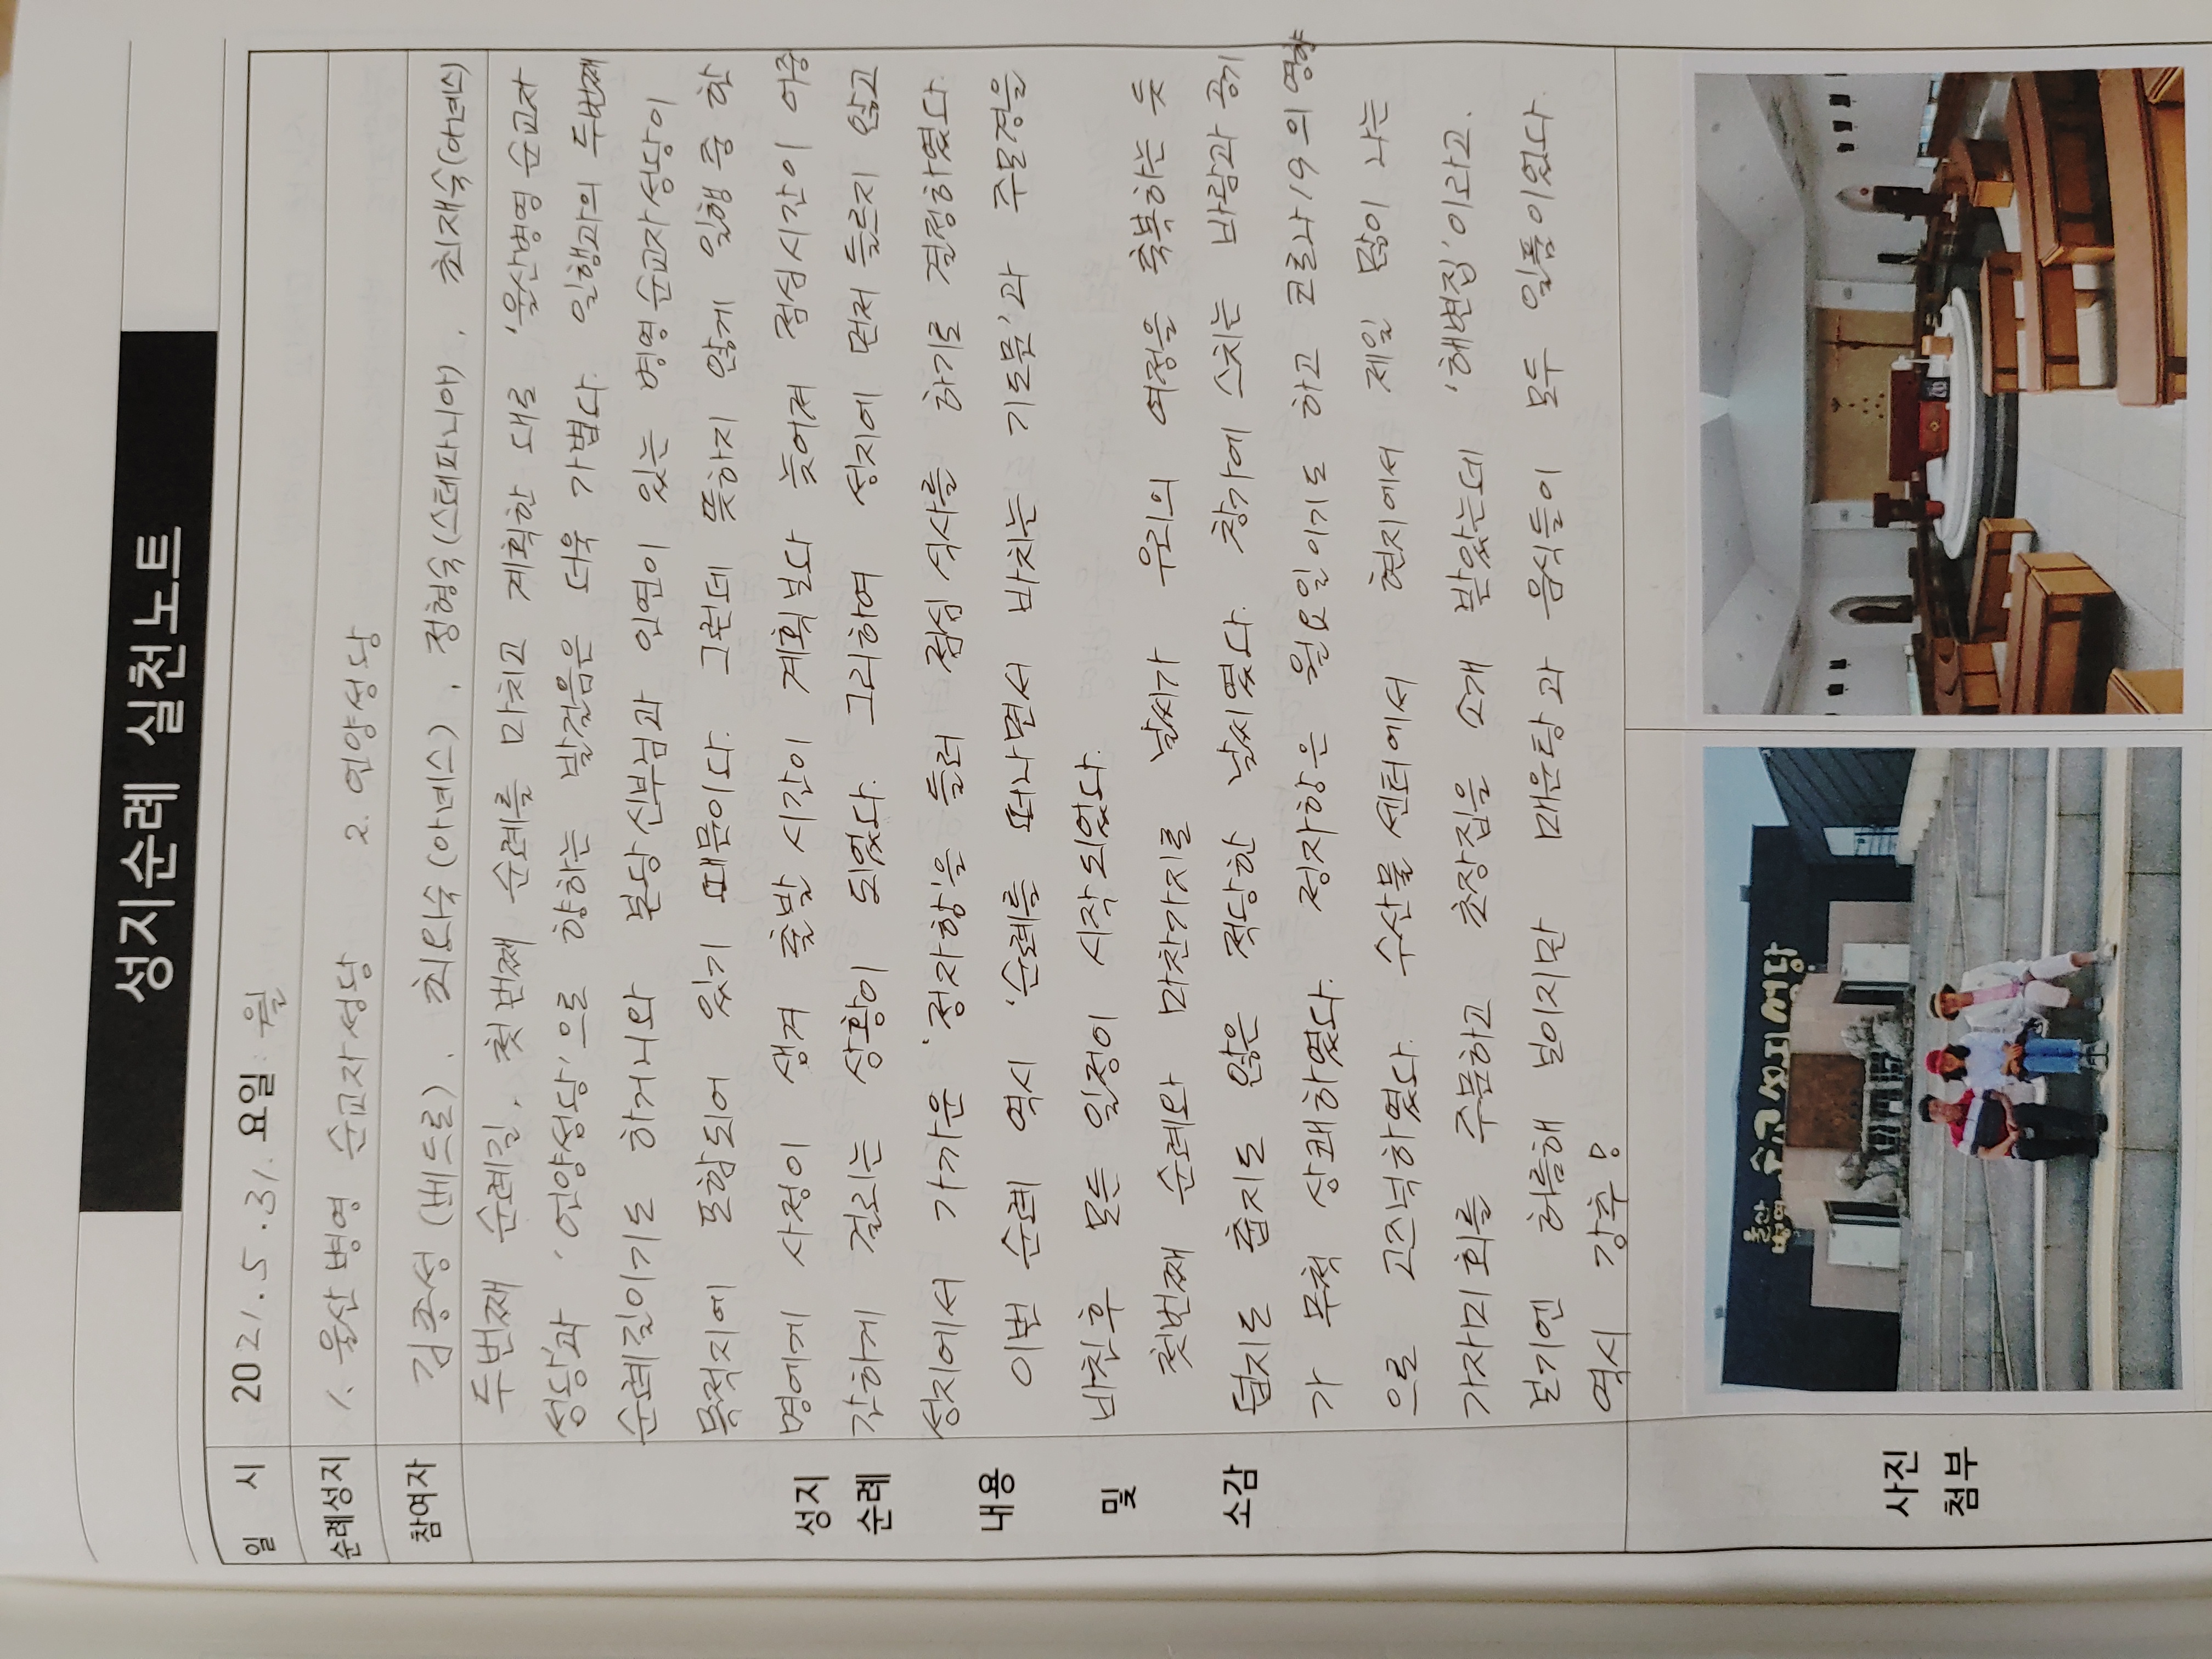 성지순례 실천노트
일 시 2021. 5. 31. 요일: 월
순례성지 1. 울산병영 순교자성당 2. 언양성당
참여자 김종성(베드로), 최외숙(아녜스), 정형숙(스테파니아), 최재숙(아녜스)
성지 순례 내용 및 소감
두번째 순례길, 첫번째 순례를 마치고 계획한 대로 '울산병영 순교자
성당'과 '언양성당'으로 향하는 발걸음은 더욱 가볍다. 일행과의 두번째
순례길이기도 하거니와 본당신부님과 인연이 있는 병영순교자성당이
목적지에 포함되어 있기 때문이다. 그런데 뜻하지 않게 일행 중 한
명에게 사정이 생겨 출발 시간이 계획보다 늦어져 점심시간이 어중
간하게 걸리는 상황이 되었다. 그리하여 성지에 먼저 들르지 않고
성지에서 가까운 '정자항'을 들러 점심 식사를 하기로 결정하였다.
이번 순례 역시 '순례를 떠나면서 바치는 기도문'과 주모경을
바친후 모든 일정이 시작되었다.
첫번째 순례와 마찬가지로 날씨가 우리의 여정을 축복하는 듯
덥지도 춥지도 않은 적당한 날씨였다. 창가에 스치는 바람과 공기
가 무척 상쾌하였다. 정자항은 월요일이기도 하고 코로나19의 영향
으로 고즈넉하였다. 수산물센터에서 현지에서 제일 많이 나는
가자미회를 주문하고 초장집을 소개 받았는데 '해변집'이라고.
보기엔 허름해 보이지만 매운탕과 음식들이 모두 일품이었다.
역시 강추!
사진 첨부
울산
병영 순교성지성당